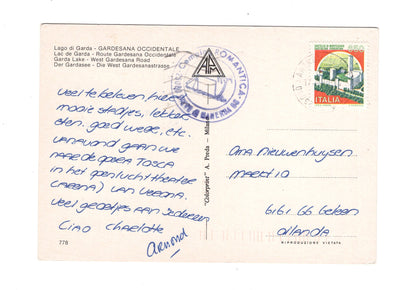 Lago di Garda - GARDESANA OCCIDENTALE
Lac de Garda - Route Gardesana Occidentale
Garda Lake - West Gardesana Road
Der Gardasee - Die West Gardesanastrasse
veel te beleven hier
mooie stadjes, lekker
eten, goed wede, etc.
vanavond gaan we
naar de opera TOSCA
in het openluchttheater
(ARENA) van VERONA.
veel groetjes aan iedereen
CIAO Charlotte
Arnond
778
"Colorprint" A. Preda - Milano
ROMANTICA
650
ITALIA
Oma Nieuwenhuysen
MARKT 10
6161 GG Geleen
Ollanda
RIPRODUZIONE VIETATA